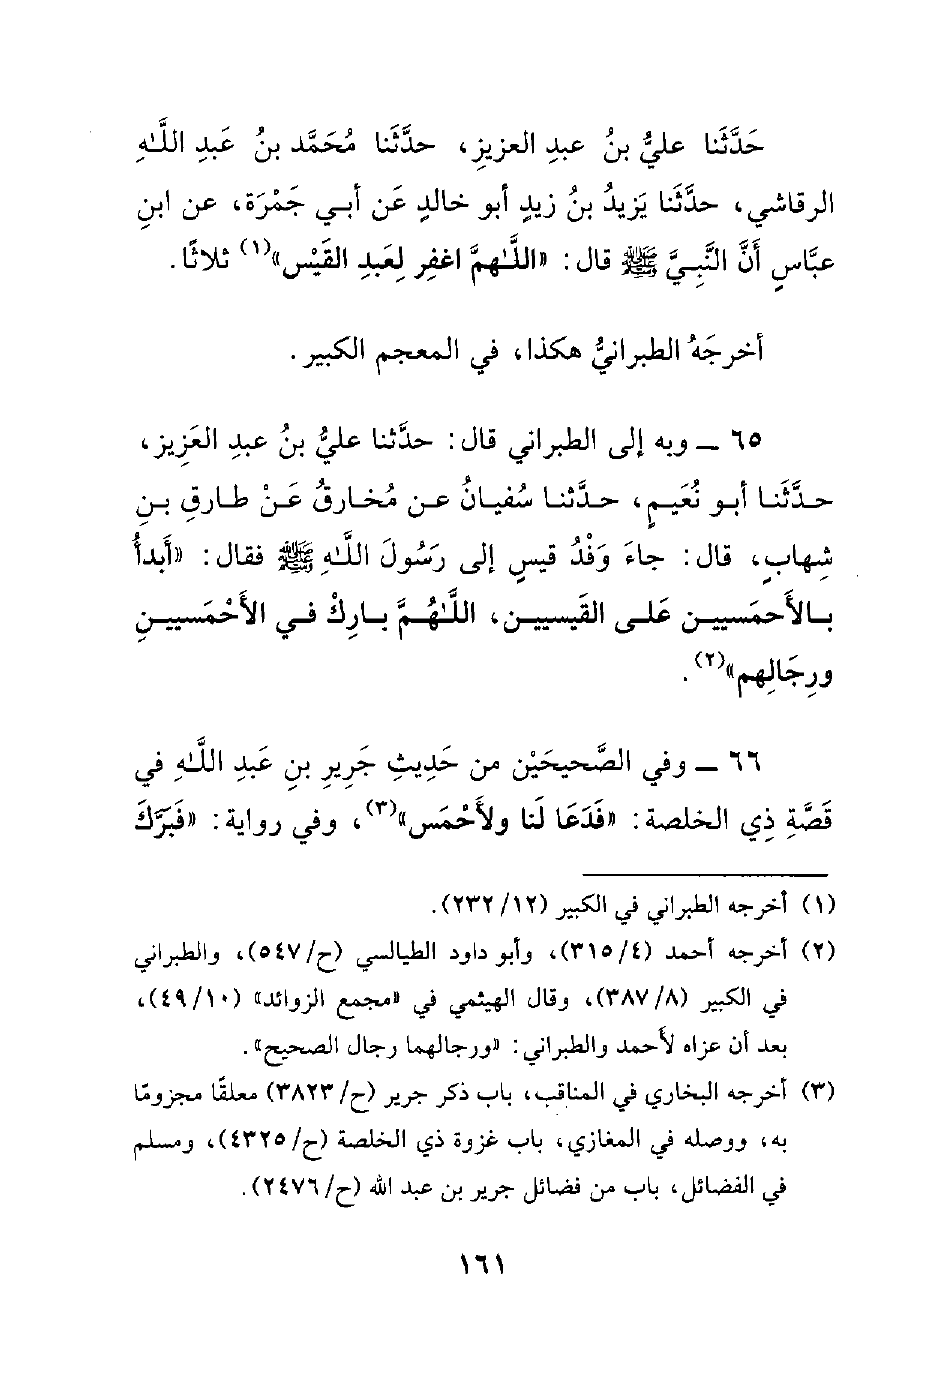 حَدَّثَنا عليُّ بنُ عبدِ العزيزِ، حدَّثَنا مُحَمَّد بنُ عَبدِ اللَّـهِ
الرقاشي، حدَّثَنا يَزيدُ بنُ زيدٍ أبو خالدٍ عَن أبـي جَمْرَة، عن ابنِ
عبَّاسٍ أنَّ النَّبِـيَّ ﷺ قال: «اللَّـهمَّ اغفِر لِعَبدِ القَيْس»(١) ثلاثًا.
أخرجَهُ الطبرانيُّ هكذا، في المعجم الكبير.
٦٥ ـ وبه إلى الطبراني قال: حدَّثنا عليُّ بنُ عبدِ العَزِيز،
حدَّثَنا أبو نُعَيمٍ، حدَّثنا سُفيانُ عن مُخارقٍ عَنْ طارقِ بنِ
شِهابٍ، قال: جاءَ وَفْدُ قيسٍ إلى رَسُولَ اللَّـهِ ﷺ فقال: «أَبدأُ
بالأَحمَسيين عَلى القَيسيين، اللَّـهُمَّ بارِكْ في الأَحْمَسيينِ
ورِجَالِهم»(٢).
٦٦ ـ وفي الصَّحيحَيْن من حَدِيثِ جَرِيرِ بنِ عَبدِ اللَّـهِ في
قَصَّةِ ذِي الخلصة: «فَدَعَا لَنا ولأَحْمَس»(٣)، وفي رواية: «فَبَرَّكَ
(١) أخرجه الطبراني في الكبير (١٢/ ٢٣٢).
(٢) أخرجه أحمد (٤/ ٣١٥)، وأبو داود الطيالسي (ح/ ٥٤٧)، والطبراني
في الكبير (٨/ ٣٨٧)، وقال الهيثمي في «مجمع الزوائد» (١٠/ ٤٩)،
بعد أن عزاه لأحمد والطبراني: «ورجالهما رجال الصحيح».
(٣) أخرجه البخاري في المناقب، باب ذكر جرير (ح/ ٣٨٢٣) معلقًا مجزومًا
به، ووصله في المغازي، باب غزوة ذي الخلصة (ح/ ٤٣٢٥)، ومسلم
في الفضائل، باب من فضائل جرير بن عبد الله (ح/ ٢٤٧٦).
١٦١